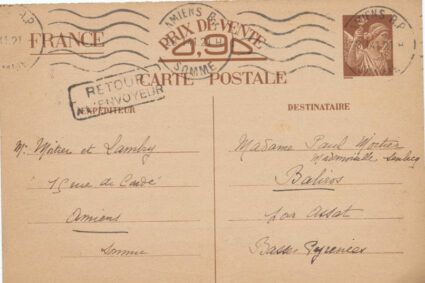 AMIENS R.P.
SOMME
FRANCE
PRIX DE VENTE
0,90
CARTE POSTALE
RETOUR
A L'ENVOYEUR
EXPÉDITEUR
DESTINATAIRE
Mr et
15 rue de Condé
Amiens
Somme
Madame Paul Mortier
Mademoiselle
Baliros
par Assat
Basses-Pyrénées